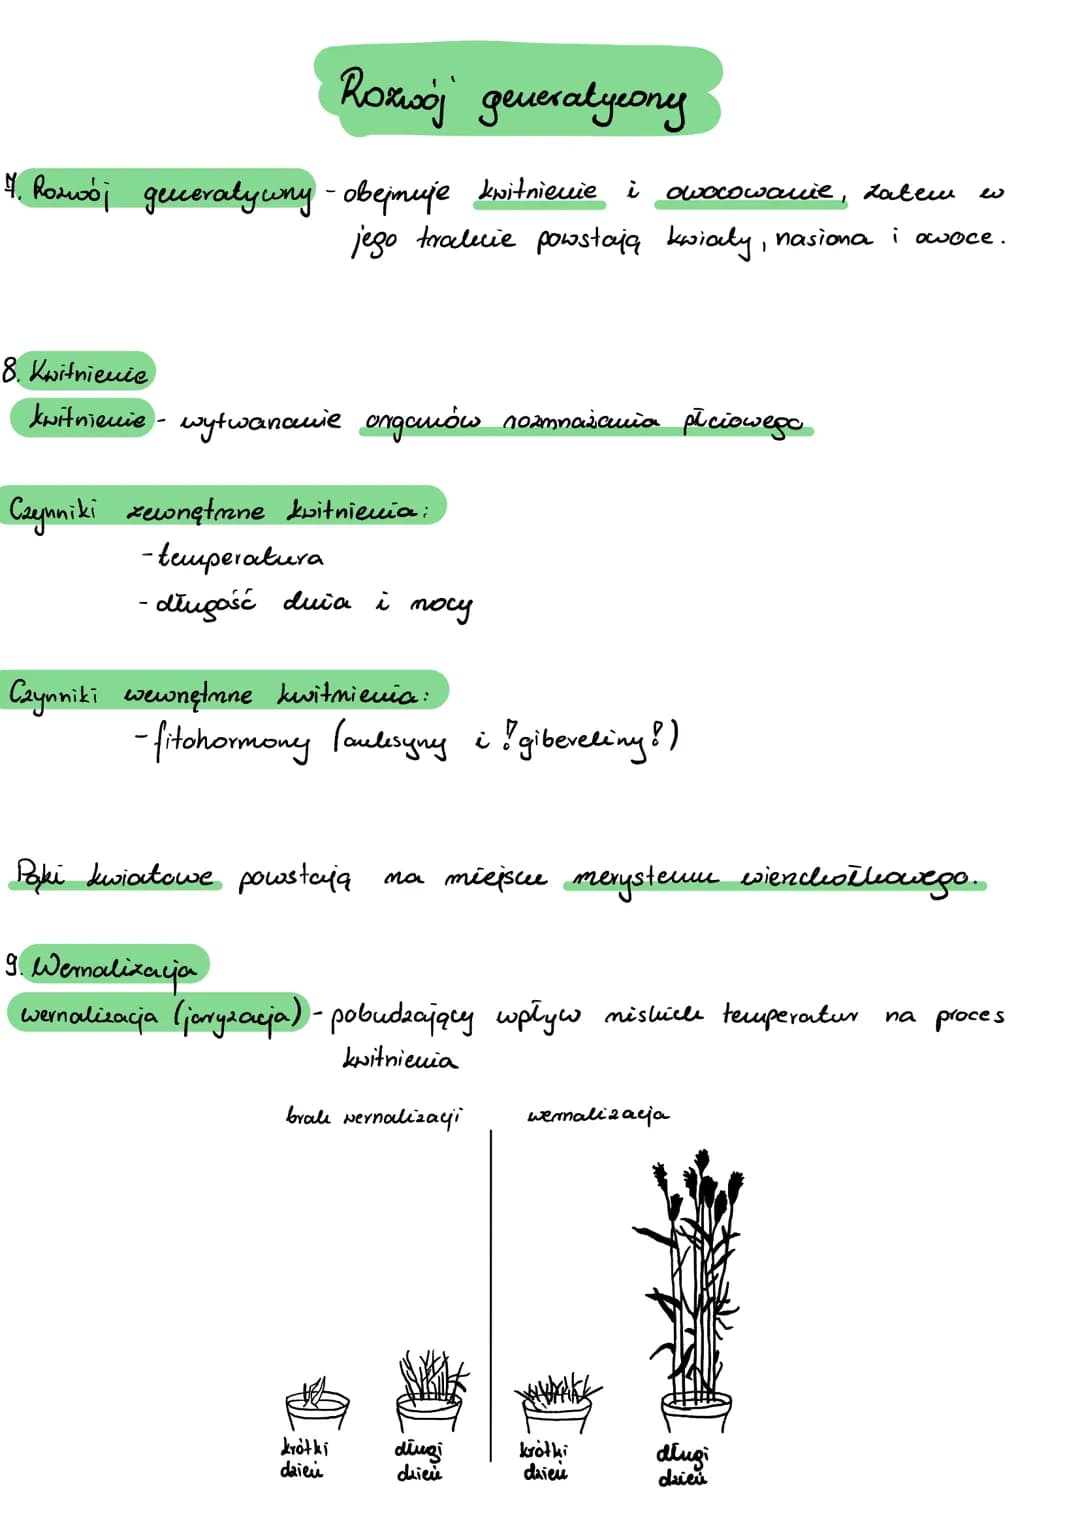 Rozwój generatywny
7. Rozwój generatywny - obejmuje kwitnienie i owocowanie, zatem w
jego trakcie powstają kwiaty, nasiona i owoce.
8. Kwitnienie
kwitnienie - wytwarzanie organów rozmnażania płciowego
Czynniki zewnętrzne kwitnienia:
- temperatura
- długość dnia i nocy
Czynniki wewnętrzne kwitnienia:
- fitohormony (auksyny i !gibereliny!)
Pąki kwiatowe powstają na miejsce merystemu wierzchołkowego.
9. Wernalizacja
wernalizacja (jaryzacja) - pobudzający wpływ niskich temperatur na proces
kwitnienia
brak wernalizacji wernalizacja
krótki długi krótki długi
dzień dzień dzień dzień